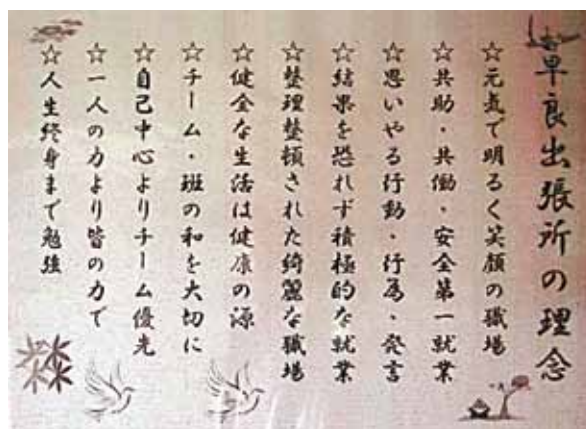 早良出張所の理念
☆元気で明るく笑顔の職場
☆共助・共働・安全第一就業
☆思いやる行動・行為・発言
☆結果を恐れず積極的な就業
☆整理整頓された綺麗な職場
☆健全な生活は健康の源
☆チーム・班の和を大切に
☆自己中心よりチーム優先
☆一人の力より皆の力で
☆人生終身まで勉強